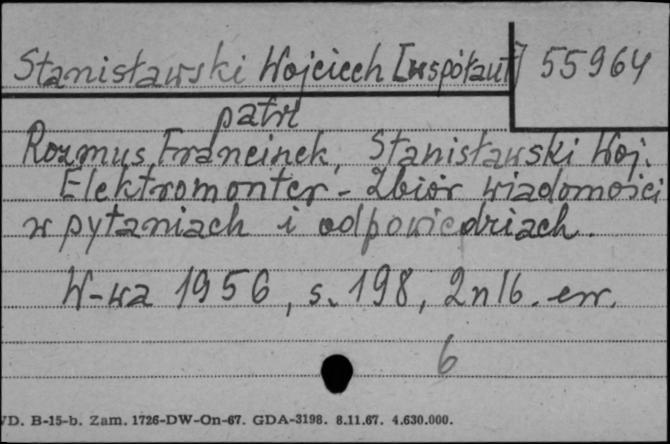 Stanisławski Wojciech [współaut] 55964
patrz
Rozmus Franciszek, Stanisławski Woj.
Elektromonter - Zbiór wiadomości
w pytaniach i odpowiedziach.
W-wa 1956, s. 198, 2nlb. err.
6
VD. B-15-b. Zam. 1726-DW-On-67. GDA-3198. 8.11.67. 4.630.000.